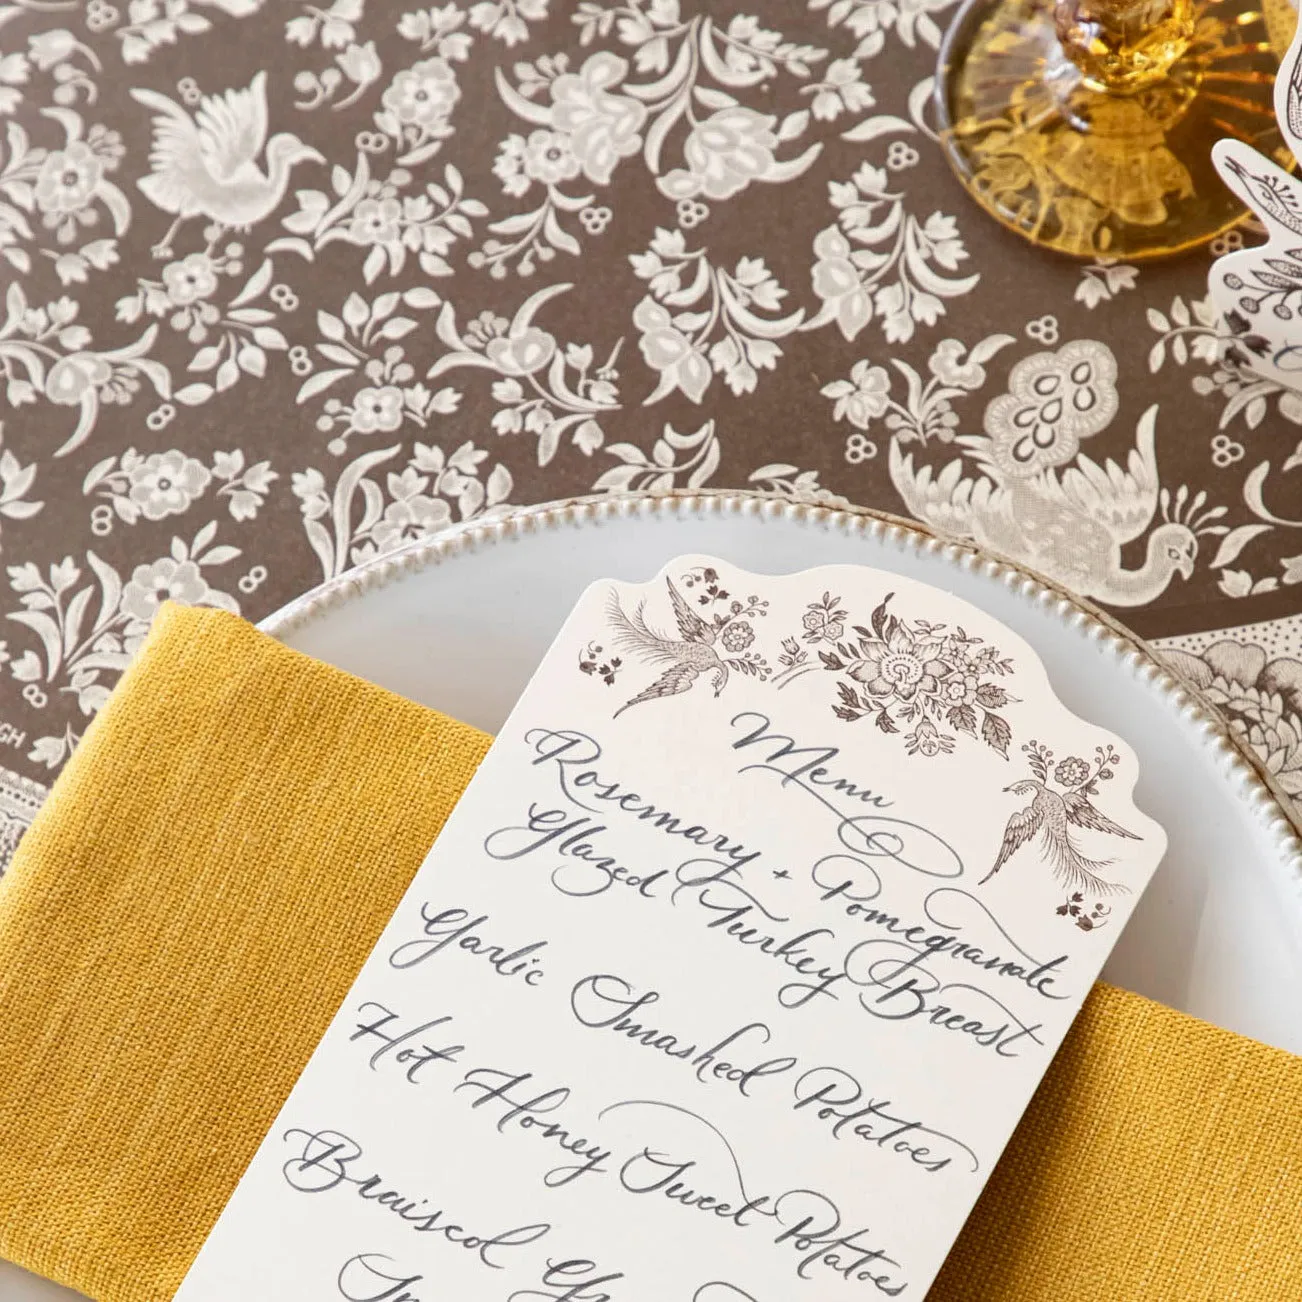 Menu
Rosemary + Pomegranate
Glazed Turkey Breast
Garlic Smashed Potatoes
Hot Honey Sweet Potatoes
Braised